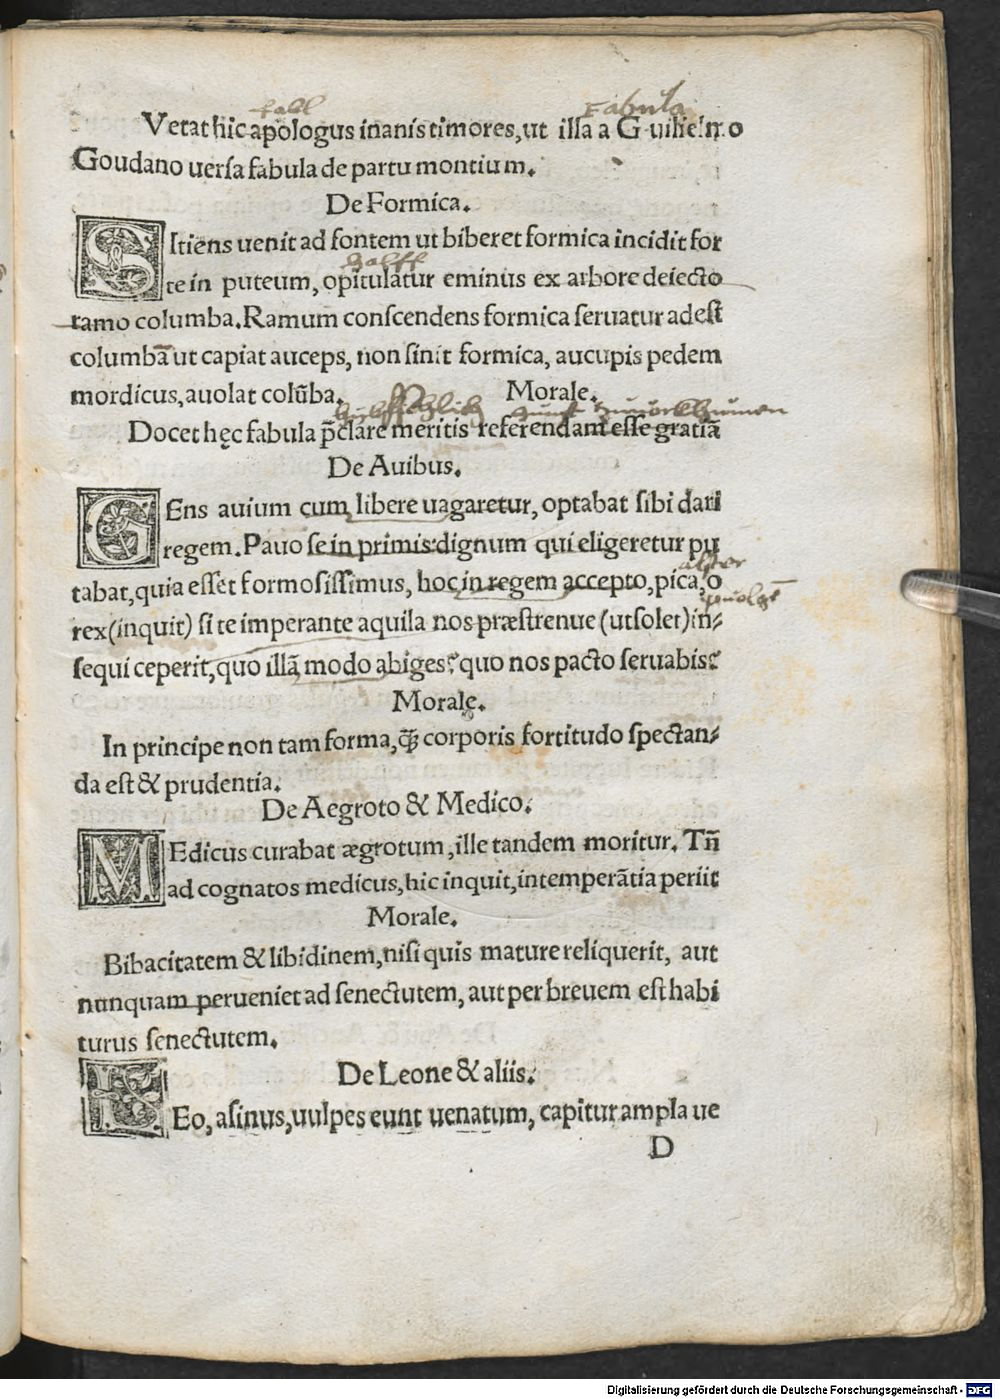 fabl Fabula
Vetat hic apologus inanis timores, ut illa a Guilielmo
Goudano uersa fabula de partu montium.
De Formica.
SItiens uenit ad fontem ut biberet formica incidit for
halff
te in puteum, opitulatur eminus ex arbore deiecto
ramo columba. Ramum conscendens formica seruatur adest
columbā ut capiat auceps, non sinit formica, aucupis pedem
mordicus, auolat colūba. Morale.
Docet hęc fabula p̄clare meritis referendam esse gratiā
De Auibus.
GEns auium cum libere uagaretur, optabat sibi dari
regem. Pauo se in primis dignum qui eligeretur pu
tabat, quia esset formosissimus, hoc in regem accepto, pica, o
rex (inquit) si te imperante aquila nos præstrenue (ut solet) in⸗
sequi ceperit, quo illā modo abiges? quo nos pacto seruabis?
Morale.
In principe non tam forma, q̄ꝫ corporis fortitudo spectan⸗
da est & prudentia.
De Aegroto & Medico.
MEdicus curabat ægrotum, ille tandem moritur. Tn̄
ad cognatos medicus, hic inquit, intemperātia periit
Morale.
Bibacitatem & libidinem, nisi quis mature reliquerit, aut
nunquam perueniet ad senectutem, aut per breuem est habi
turus senectutem.
De Leone & aliis.
Eo, asinus, uulpes eunt uenatum, capitur ampla ue
D
Digitalisierung gefördert durch die Deutsche Forschungsgemeinschaft - DFG